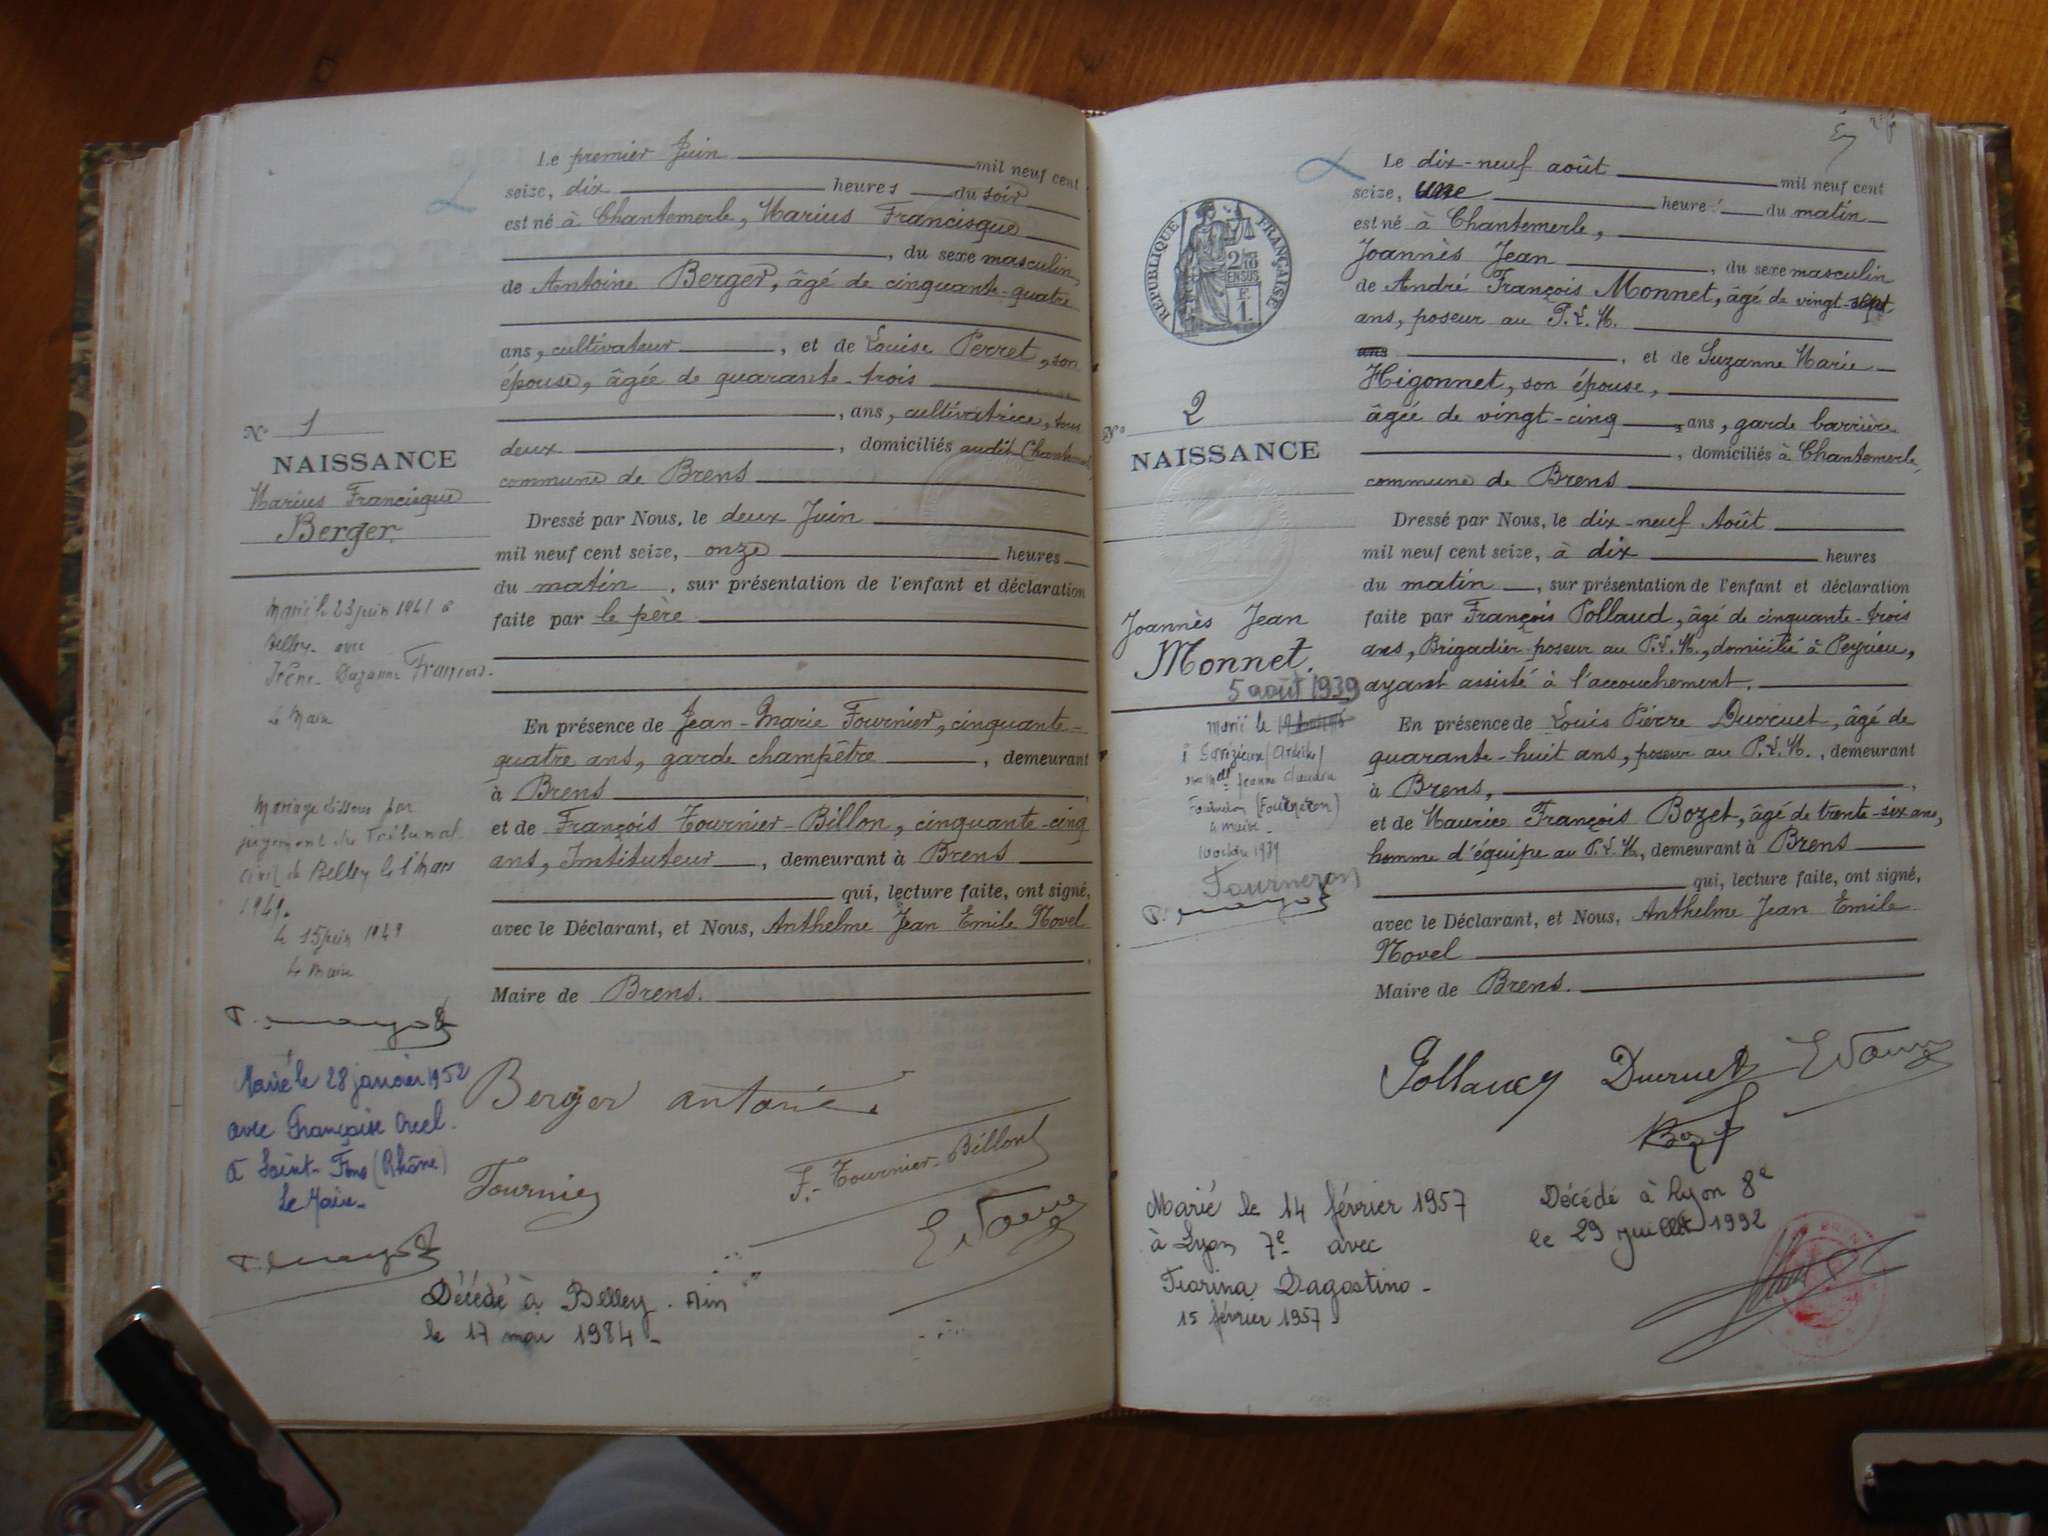 Le premier Juin mil neuf cent
seize, dix heures du soir
est né à Chantemerle, Marius Francisque
, du sexe masculin,
de Antoine Berger, âgé de cinquante-quatre
ans, cultivateur, et de Louise Perret, son
épouse, âgée de quarante-trois
, ans, cultivatrice, tous
deux, domiciliés audit Chantemerle,
commune de Brens
Dressé par Nous, le deux Juin
mil neuf cent seize, onze heures
du matin, sur présentation de l'enfant et déclaration
faite par le père
En présence de Jean-Marie Fournier, cinquante-
quatre ans, garde champêtre, demeurant
à Brens,
et de François Tournier-Billon, cinquante-cinq
ans, Instituteur, demeurant à Brens
qui, lecture faite, ont signé,
avec le Déclarant, et Nous, Anthelme Jean Emile Novel
,
Maire de Brens.
N° 1
NAISSANCE
Marius Francisque
Berger
Marié le 23 juin 1941 à
Belley avec
Irène Suzanne
Le Maire
Mariage dissous par
jugement du Tribunal
civil de Belley le 1er Mars
1949.
le 15 juin 1949
Le Maire
Marié le 28 janvier 1952
avec Françoise
à Saint-Fons (Rhône)
Le Maire
Berger antoine
Fournier
F. Tournier-Billon
Décédé à Belley. Ain
le 17 mai 1984
Le dix-neuf août mil neuf cent
seize, une heure du matin
est né à Chantemerle,
Joannès Jean, du sexe masculin
de André François Monnet, âgé de vingt-sept
ans, poseur au P.L.M.
ans, et de Suzanne Marie
Higonnet, son épouse,
âgée de vingt-cinq, ans, garde barrière
, domiciliés à Chantemerle,
commune de Brens
Dressé par Nous, le dix-neuf Août
mil neuf cent seize, à dix heures
du matin, sur présentation de l'enfant et déclaration
faite par François Pollaud, âgé de cinquante-trois
ans, Brigadier-poseur au P.L.M., domicilié à Peyrieu,
ayant assisté à l'accouchement.
En présence de Louis Pierre Ducruet, âgé de
quarante-huit ans, poseur au P.L.M., demeurant
à Brens,
et de Maurice François Bozet, âgé de trente-six ans,
homme d'équipe au P.L.M., demeurant à Brens
qui, lecture faite, ont signé,
avec le Déclarant, et Nous, Anthelme Jean Emile
Novel
Maire de Brens.
RÉPUBLIQUE FRANÇAISE
2/10 EN SUS
1 F.
N° 2
NAISSANCE
Joannès Jean
Monnet.
5 août 1939
Marié le
Jeanne Claudia
(Fourneron)
le Maire
10 octobre 1939
Fourneron
Ducruet
Marié le 14 février 1957
à Lyon 7e avec
Fiorina Dagostino
15 février 1957
Décédé à Lyon 8e
le 29 juillet 1992